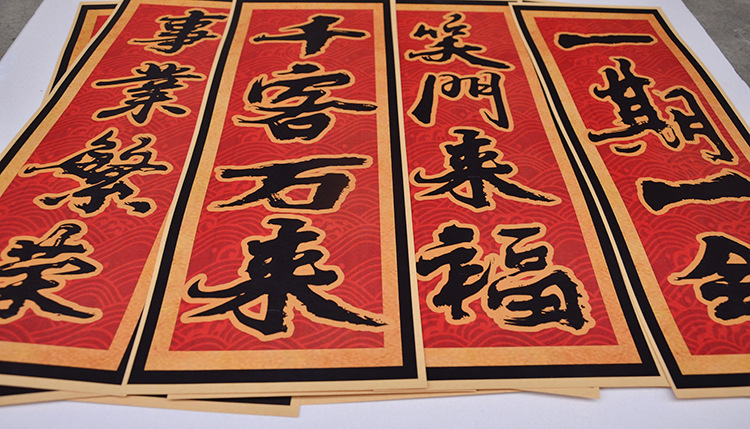 事業繁荣
千客石来
笑門来福
一期一